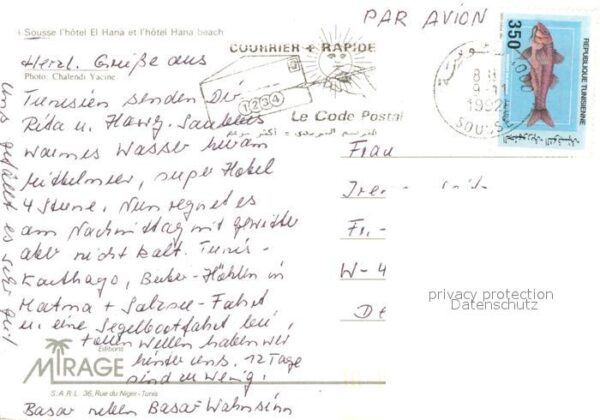 Sousse l'hôtel El Hana et l'hôtel Hana beach
PAR AVION
Herzl. Grüße aus
Photo: Chalendi Yacine
Tunesien senden Dir
Rita u.
warmes Wasser hier am
Mittelmeer, super Hotel
4 Sterne. Nun regnet es
am Nachmittag mit Gewitter
aber nicht kalt. Tunis-
Karthago, Berber-Höhlen in
Matma + Salzsee-Fahrt
u. eine Segelbootfahrt bei,
tollen Wellen haben wir
hinter uns. 12 Tage
sind zu wenig!
Basar neben Basar Wahnsinn
uns gefällt es sehr gut
Editions
MIRAGE
S.A.R.L. 36, Rue du Niger-Tunis
COURRIER + RAPIDE
1234
Le Code Postal
الترقيم البريدي = أكثر سرعة
8 H
9-11
1992
SOUSSE
350
REPUBLIQUE TUNISIENNE
Frau
W-4
privacy protection
Datenschutz